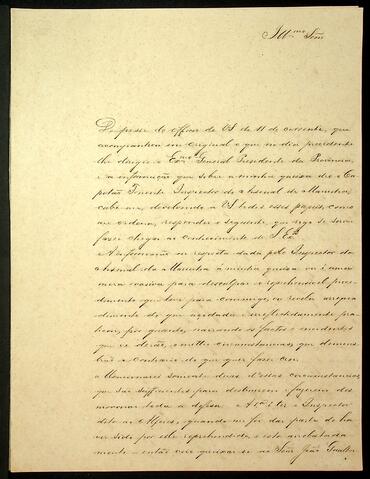 Ill.mo Senr.
De posse do officio de VS de 11 do corrente, que
acompanhou em original o que no dia precedente
lhe dirigio o Exmo General Presidente da Provincia,
e a informação que sobre a minha queixa deo o Ca-
pitão Tenente Inspector do Arsenal de Marinha,
cabe-me, devolvendo a VS todos esses papeis, como
me ordena, responder o seguinte, que rogo se sirva
fazer chegar ao conhecimento de S Exa.
A informação ou resposta dada pelo Inspector do
Arsenal de Marinha à minha queixa ou é uma
mera evasiva para desculpar o reprehensivel proce-
dimento que teve para commigo, ou revela arrepen-
dimento do que agitada e irreflectidamente pra-
ticou, por quanto, narrando os factos e incidentes
que se derão, omitte circunstancias que demons-
trão o contrario do que quer fazer crer.
Mencionarei somente duas d'essas circunstancias,
que são sufficientes para destruirem e fazerem des-
moronar toda a defesa. A 1a é ter o Inspector
dito ao Alferes, quando me foi dar parte de ha-
ver sido por elle reprehendido e isto arrebatada-
mente – então vais queixar-se ao Senr João Gualber